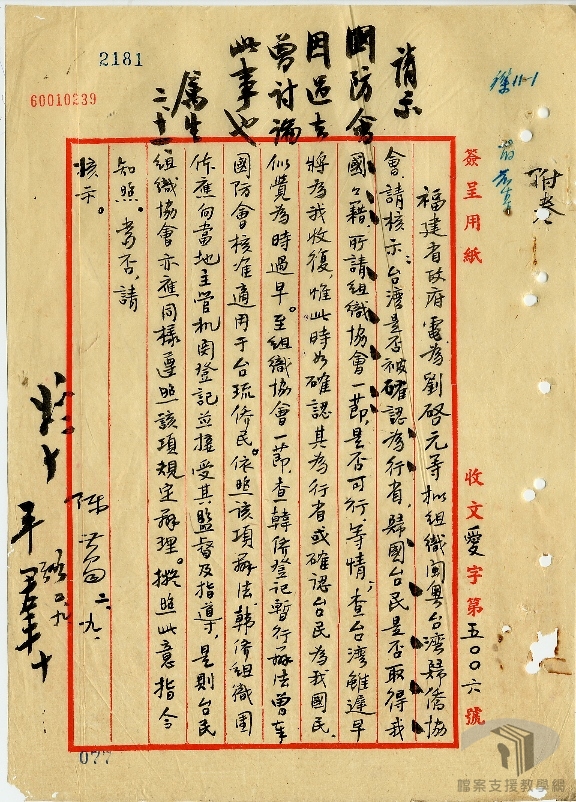 附卷
簽呈用紙
收文愛字第五〇〇六號
請示
國防會
因過去
曾討論
此事也
厲生
二十一
2181
60010239
福建省政府電為劉啓元等擬組織閩粵台灣歸僑協
會,請核示:台灣是否被確認為行省,歸國台民是否取得我
國々籍,所請組織協會一節,是否可行,等情;查台灣雖遲早
將為我收復,惟此時如確認其為行省或確認台民為我國民,
似覺為時過早。至組織協會一節,查韓僑登記暫行辦法曾奉
國防會核准適用于台琉僑民。依照該項辦法韓僑組織團
体應向當地主管机関登記並接受其監督及指導,是則台民
組織協會亦應同樣遵照該項規定辦理。擬照此意指令
知照。當否,請
核示。
二、九
077
檔案支援教學網